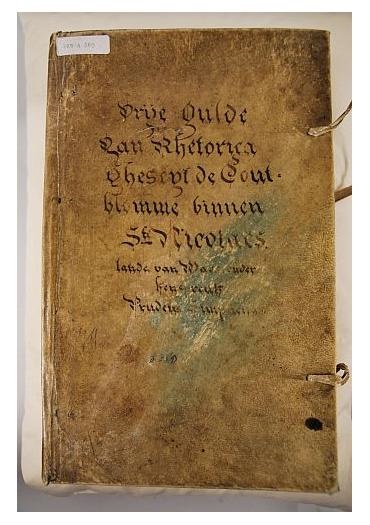 Vrije Gulde
Van Rhetorica
Gheseyt de Gout-
blomme binnen
Ste Nicolaes.
lande van Waes onder
Prudens